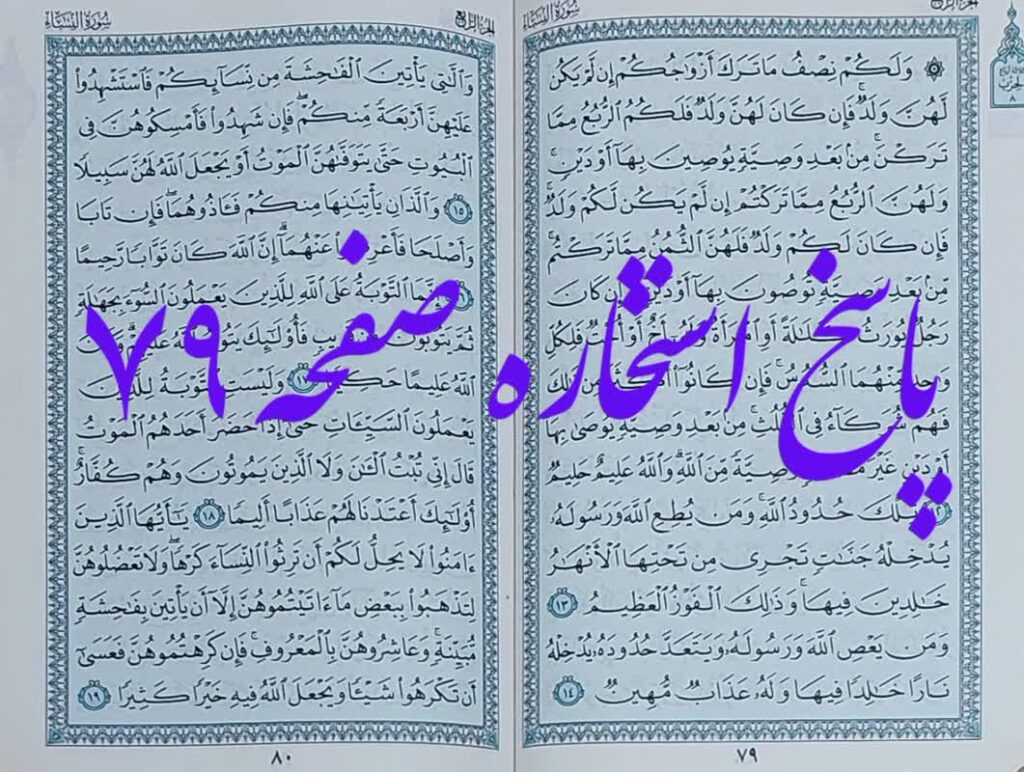 سُورَةُ النِّسَاءِ
وَلَكُمْ نِصْفُ مَا تَرَكَ أَزْوَاجُكُمْ إِن لَّمْ يَكُن
لَّهُنَّ وَلَدٌ فَإِن كَانَ لَهُنَّ وَلَدٌ فَلَكُمُ الرُّبُعُ مِمَّا
تَرَكْنَ مِن بَعْدِ وَصِيَّةٍ يُوصِينَ بِهَا أَوْ دَيْنٍ
وَلَهُنَّ الرُّبُعُ مِمَّا تَرَكْتُمْ إِن لَّمْ يَكُن لَّكُمْ وَلَدٌ
فَإِن كَانَ لَكُمْ وَلَدٌ فَلَهُنَّ الثُّمُنُ مِمَّا تَرَكْتُم
مِّن بَعْدِ وَصِيَّةٍ تُوصُونَ بِهَا أَوْ دَيْنٍ وَإِن كَانَ
رَجُلٌ يُورَثُ كَلَالَةً أَوِ امْرَأَةٌ وَلَهُ أَخٌ أَوْ أُخْتٌ فَلِكُلِّ
وَاحِدٍ مِّنْهُمَا السُّدُسُ فَإِن كَانُوا أَكْثَرَ مِن ذَٰلِكَ
فَهُمْ شُرَكَاءُ فِي الثُّلُثِ مِن بَعْدِ وَصِيَّةٍ يُوصَىٰ بِهَا
أَوْ دَيْنٍ غَيْرَ مُضَارٍّ وَصِيَّةً مِّنَ اللَّهِ وَاللَّهُ عَلِيمٌ حَلِيمٌ
١٢ تِلْكَ حُدُودُ اللَّهِ وَمَن يُطِعِ اللَّهَ وَرَسُولَهُ
يُدْخِلْهُ جَنَّاتٍ تَجْرِي مِن تَحْتِهَا الْأَنْهَارُ
خَالِدِينَ فِيهَا وَذَٰلِكَ الْفَوْزُ الْعَظِيمُ ١٣
وَمَن يَعْصِ اللَّهَ وَرَسُولَهُ وَيَتَعَدَّ حُدُودَهُ يُدْخِلْهُ
نَارًا خَالِدًا فِيهَا وَلَهُ عَذَابٌ مُّهِينٌ ١٤
٧٩
سُورَةُ النِّسَاءِ
وَاللَّاتِي يَأْتِينَ الْفَاحِشَةَ مِن نِّسَائِكُمْ فَاسْتَشْهِدُوا
عَلَيْهِنَّ أَرْبَعَةً مِّنكُمْ فَإِن شَهِدُوا فَأَمْسِكُوهُنَّ فِي
الْبُيُوتِ حَتَّىٰ يَتَوَفَّاهُنَّ الْمَوْتُ أَوْ يَجْعَلَ اللَّهُ لَهُنَّ سَبِيلًا
١٥ وَاللَّذَانِ يَأْتِيَانِهَا مِنكُمْ فَآذُوهُمَا فَإِن تَابَا
وَأَصْلَحَا فَأَعْرِضُوا عَنْهُمَا إِنَّ اللَّهَ كَانَ تَوَّابًا رَّحِيمًا
١٦ إِنَّمَا التَّوْبَةُ عَلَى اللَّهِ لِلَّذِينَ يَعْمَلُونَ السُّوءَ بِجَهَالَةٍ
ثُمَّ يَتُوبُونَ مِن قَرِيبٍ فَأُولَٰئِكَ يَتُوبُ اللَّهُ عَلَيْهِمْ وَكَانَ
اللَّهُ عَلِيمًا حَكِيمًا ١٧ وَلَيْسَتِ التَّوْبَةُ لِلَّذِينَ
يَعْمَلُونَ السَّيِّئَاتِ حَتَّىٰ إِذَا حَضَرَ أَحَدَهُمُ الْمَوْتُ
قَالَ إِنِّي تُبْتُ الْآنَ وَلَا الَّذِينَ يَمُوتُونَ وَهُمْ كُفَّارٌ
أُولَٰئِكَ أَعْتَدْنَا لَهُمْ عَذَابًا أَلِيمًا ١٨ يَا أَيُّهَا الَّذِينَ
آمَنُوا لَا يَحِلُّ لَكُمْ أَن تَرِثُوا النِّسَاءَ كَرْهًا وَلَا تَعْضُلُوهُنَّ
لِتَذْهَبُوا بِبَعْضِ مَا آتَيْتُمُوهُنَّ إِلَّا أَن يَأْتِينَ بِفَاحِشَةٍ
مُّبَيِّنَةٍ وَعَاشِرُوهُنَّ بِالْمَعْرُوفِ فَإِن كَرِهْتُمُوهُنَّ فَعَسَىٰ
أَن تَكْرَهُوا شَيْئًا وَيَجْعَلَ اللَّهُ فِيهِ خَيْرًا كَثِيرًا ١٩
٨٠
پاسخ استخاره صفحه ۷۹